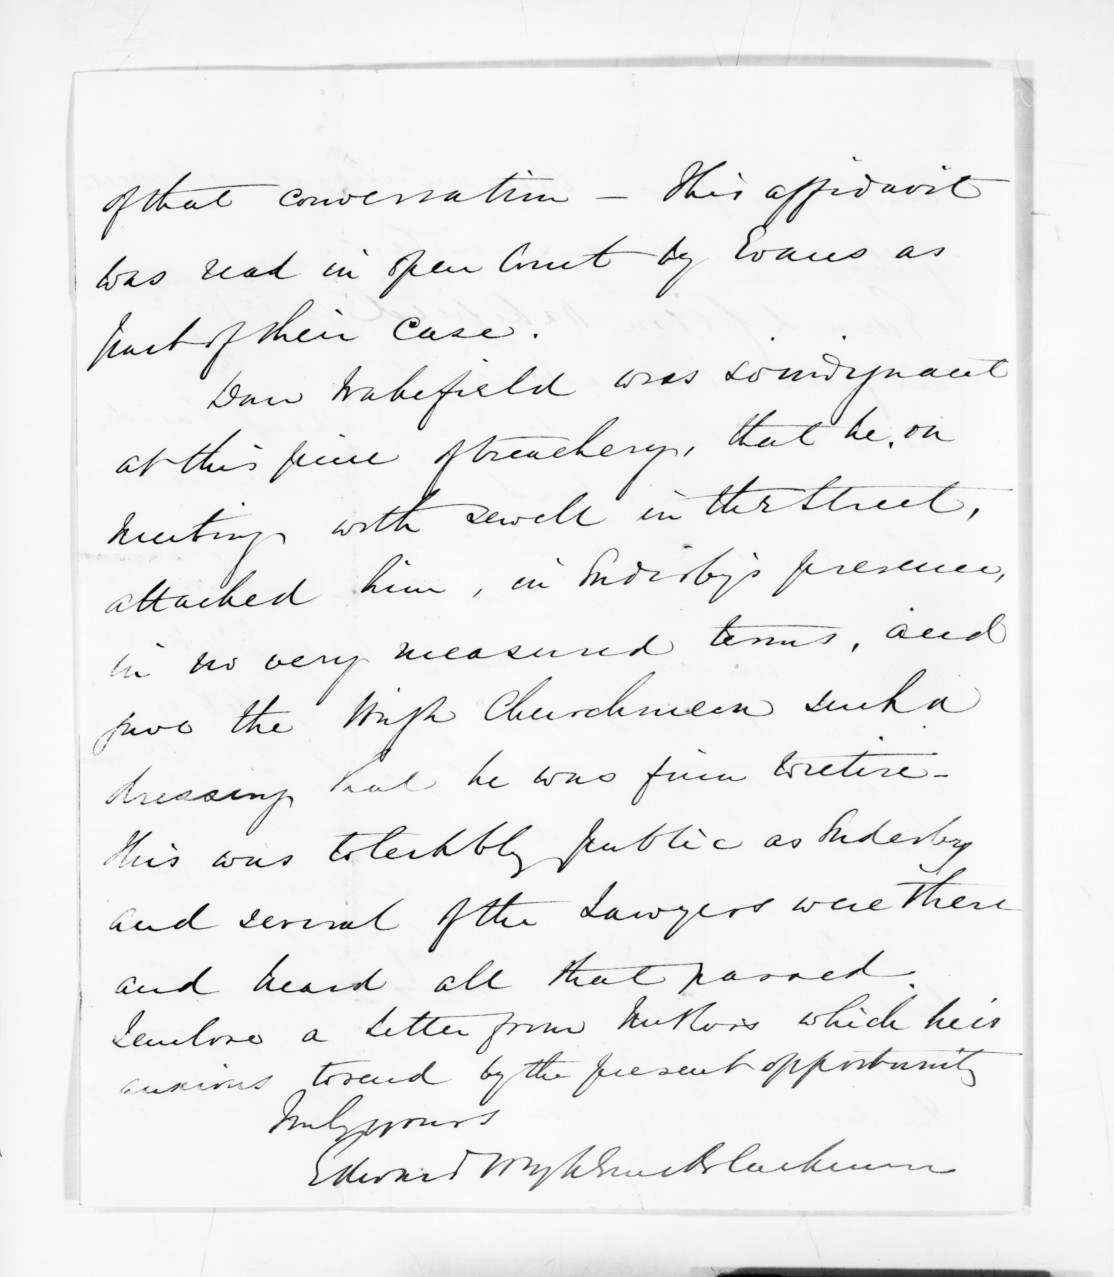 of that conversation — This affidavit
was read in open Court by Evans as
part of their case.
Dan Wakefield was so indignant
at this piece of treachery, that he, on
meeting with Sewell in the Street,
attacked him, in Enderby's presence,
in no very measured terms, and
gave the High Churchman such a
dressing that he was fain to retire —
This was tolerably public as Enderby
and several of the Lawyers were there
and heard all that passed.
I enclose a letter from which he is
anxious to send by the present opportunity
Truly yours
Edward